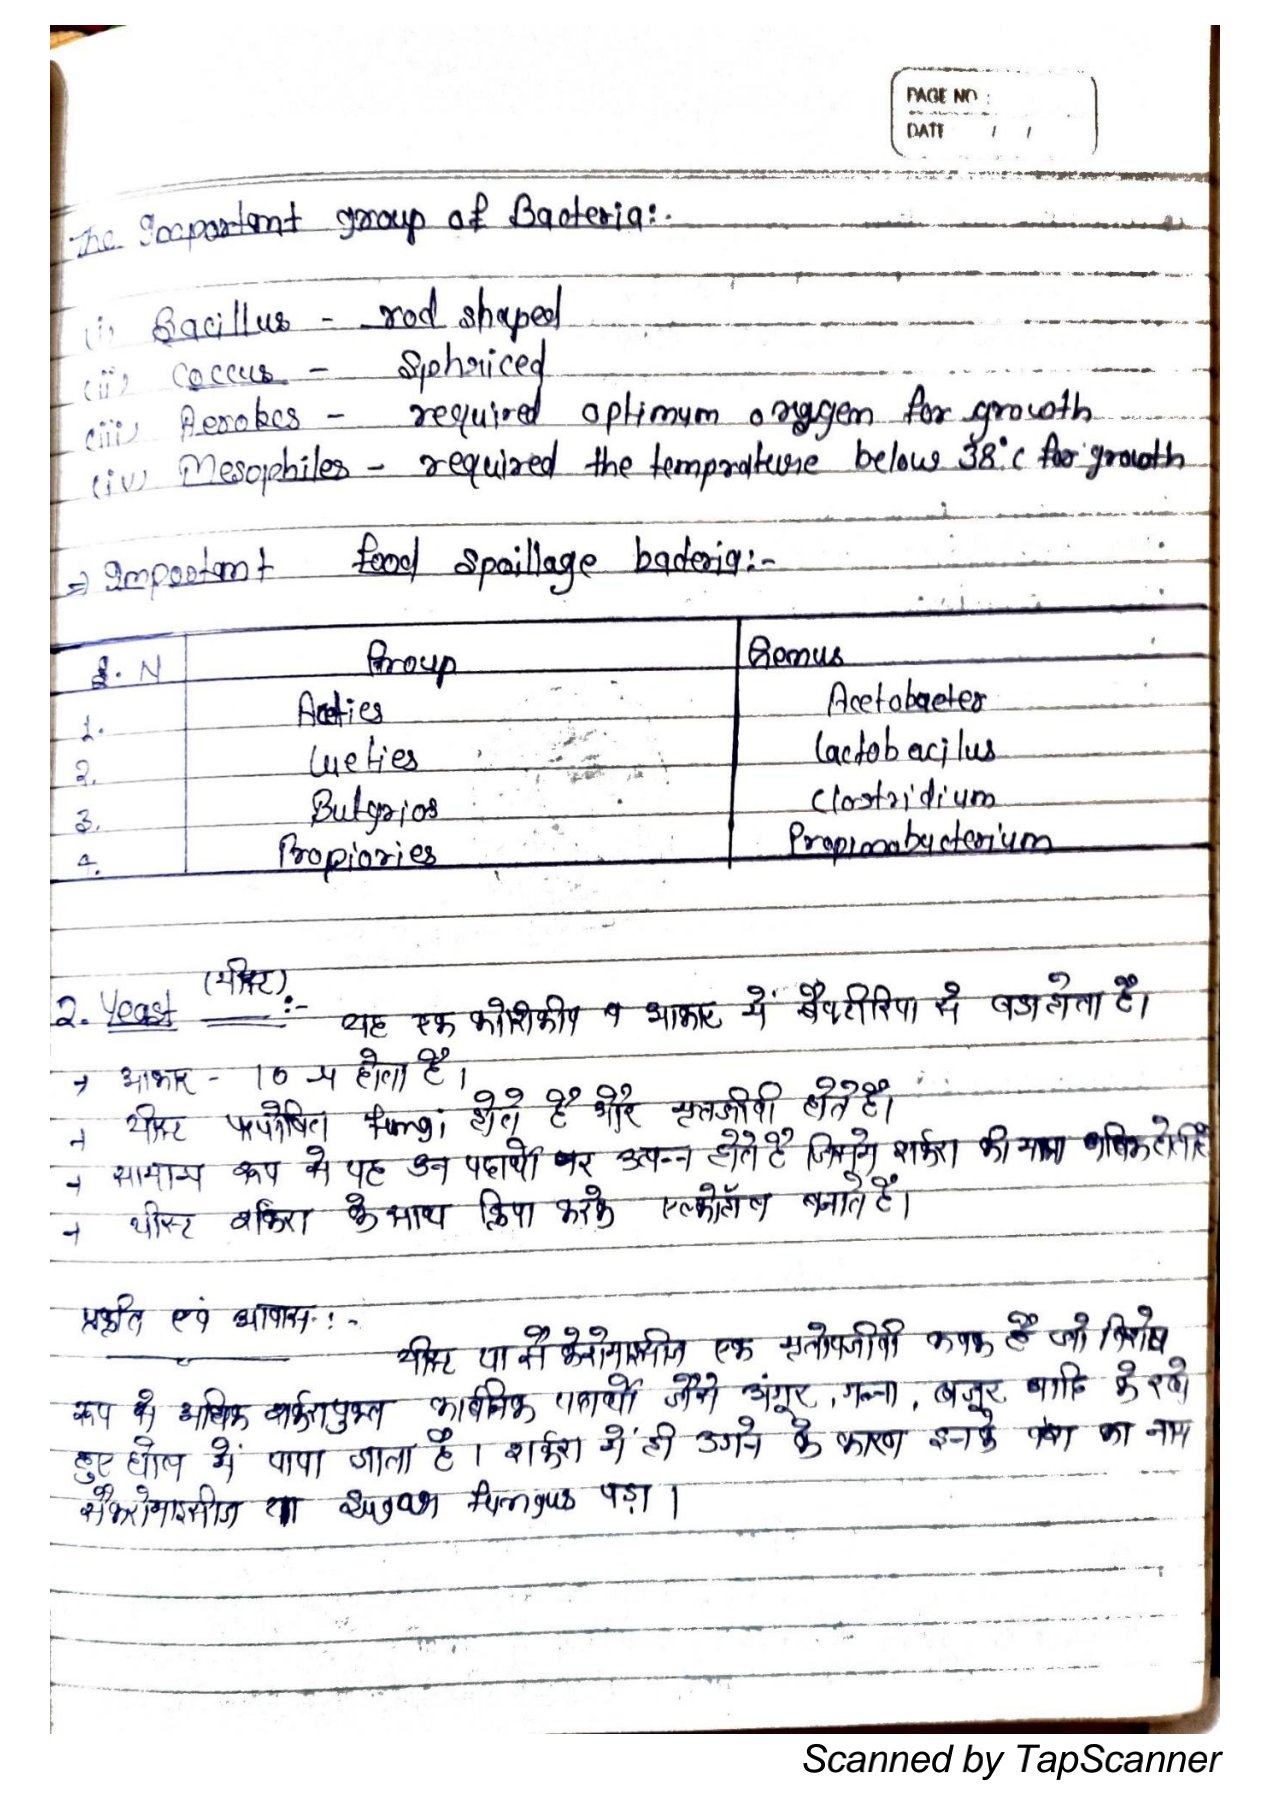 PAGE NO :
DATE / /
The Important group of Bacteria:-
(i) Bacillus - rod shaped
(ii) Coccus - Sphriced
(iii) Aerobes - required optimum oxygen for growth
(iv) Mesophiles - required the temprature below 38°c for growth
⇒ Important food spoillage bacteria:-
S. N Group Genus
1. Aceties Acetobacter
2. Lueties Lactobacilus
3. Butyrios Clostridium
4. Propiories Propionobacterium
2. Yeast (यीस्ट) :- यह एक कोशिकीय व आकार में बैक्टीरिया से बडा होता है।
→ आकार - 10 होता है।
→ यीस्ट परपोषित fungi होते है और मृतजीवी होते है।
→ सामान्य रूप से यह उन पदार्थो पर उत्पन्न होते है जिसमे शर्करा की मात्रा अधिक होती है
→ यीस्ट शर्करा के साथ क्रिया करके एल्कोहॉल बनाते है।
प्रकृति एवं आवास :-
यीस्ट या सैकेरोमाइसीज एक मृतोपजीवी कवक है जो विशेष
रूप से अधिक शर्करायुक्त कार्बनिक पदार्थो जैसे अंगूर, गन्ना, खजूर आदि के रखे
हुए घोल में पाया जाता है। शर्करा में ही उगने के कारण इनके वंश का नाम
सैकेरोमाइसीज या Sugar fungus पड़ा।
Scanned by TapScanner